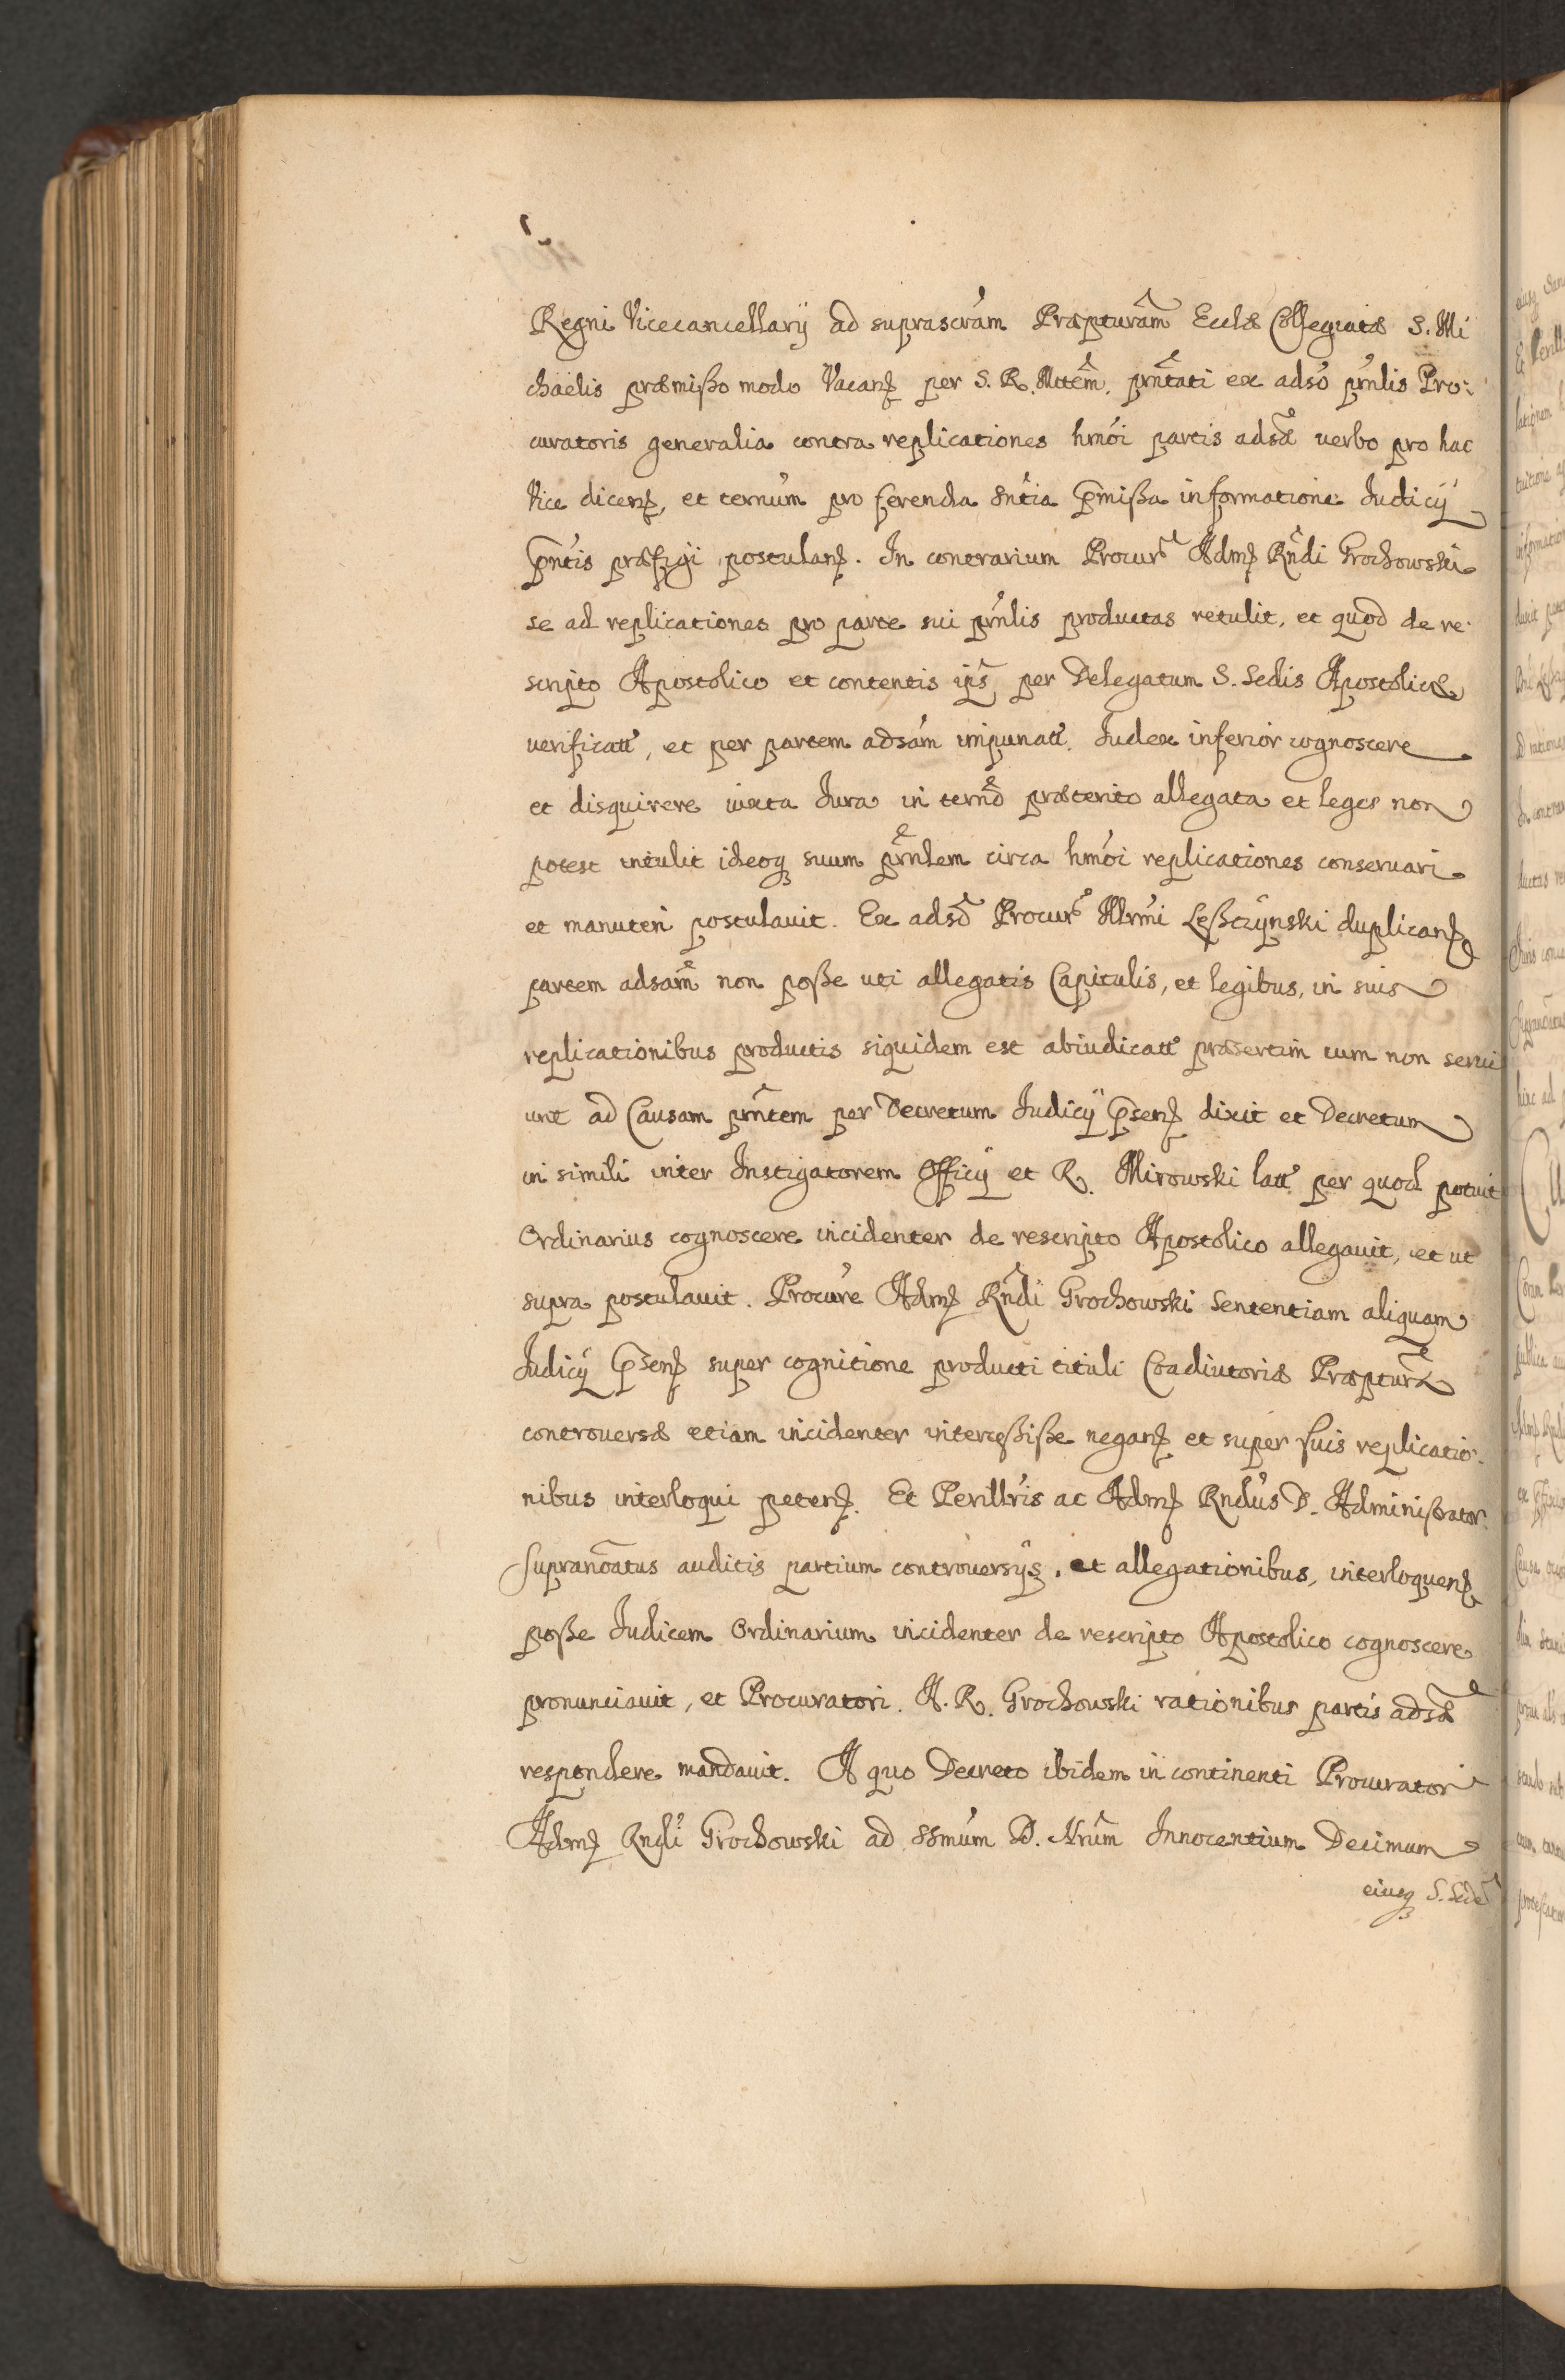 Regni Vicecancellarij ad suprascrám Præpturam̂ Ecclæ Collegiatæ S. Mi
chaëlis præmißo modo Vacanꝭ per S. R. Mttem̂. prñtati ex adsó prñlis Pro:
curatoris generalia contra replicationes hmói partis adsæ̃ verbo pro hac
Vice dicenꝭ, et ternúm pro ferenda sñtia p̃mißa informatione Iudicij
p̃ntis præfigi postulanꝭ. In contrarium Procur̃ Admꝭ Rñdi Grochowski
se ad replicationes pro parte sui prñlis productas retulit, et quod de re:
scripto Apostolico et contentis ips̃ per Delegatum S. Sedis Apostolicæ
verificatt̃, et per partem adsám impunatt̃. Iudex inferior cognoscere
et disquirere iuxta Iura in termõ præterito allegata et leges non
potest intulit ideoq₃ suum prñlem circa hmói replicationes conseruari
et manuteri postulauit. Ex adsõ Procur̃ Illrmi Leßczynski duplicanꝭ
partem adsam̃ non poße uti allegatis Capitulis, et legibus, in suis
replicationibus productis siquidem est abiudicatt̃ præsertim cum non serui
unt ad Causam prñtem per Decretum Iudicij p̃senꝭ dixit et Decretum
in simili inter Instigatorem Officij et R. Mirowski latt̃ per quod potuit
Ordinarius cognoscere incidenter de rescripto Apostolico allegauit, et ut
supra postulauit. Procúre Admꝭ Rñdi Grochowski Sententiam aliquam
Iudicij p̃senꝭ super cognitione producti tituli Coadiutoriæ Præpturæ̃
controuersæ etiam incidenter interceßiße neganꝭ et super suis replicatio:
nibus interloqui petenꝭ. Et Perillrís ac Admꝭ Rndús D. Administrator
supranõatus auditis partium controuersijs, et allegationibus, interloquenꝭ
poße Iudicem Ordinarium incidenter de rescripto Apostolico cognoscere
pronunciauit, et Procuratori A. R. Grochowski rationibus partis adsæ̃
respondere mandauit. A quo Decreto ibidem in continenti Procurator
Admꝭ Rndí Grochowski ad SSmúm D. Nrúm Innocentium Decimum
eiusq₃ S. Sede